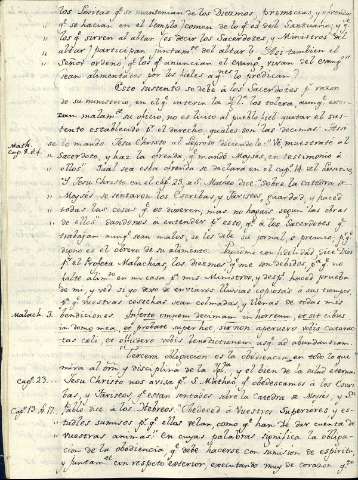 los Levitas qe se mantenian de los Diezmos, premicias, y ofrendas
qe se hacian en el templo (comen de lo qe es del Santuario, y qe
los qe sirven al altar (es decir los Sacerdotes y Ministros del
altar) participan juntamte del altar? Asi tambien el
Señor ordenó qe los qe anuncian el evangº vivan del evangº
sean alimentados por los fieles a qnes lo predican?
Este sustento se debe á los Sacerdotes pr razon
de su ministerio, en el qe interin la Ygla los tolera, aunqe exer-
zan malamte su oficio, no es licito al pueblo fiel quitar el sus-
tento establecido pr el derecho, quales son los decimas. Asi
Math. Cap. 8. se lo mandó Jesu Christo al leproso diciendole: "Vé, muestrate al
Sacerdote, y haz la ofrenda qe mandó Moysés, en testimonio á
ellos." Qual sea esta ofrenda se declara en el cap. 14 del Levitico
Y Jesu Christo en el cap. 23 de S. Mateo dice, "sobre la catedra de
Moysés se sentaron los Escribas y Fariseos, guardad, y haced
todas las cosas qe os dixeren, mas no hagais segun las obras
de ellos" dandonos a entender pr esto, qe á los Sacerdotes qe
trabajan aunqe sean malos, se les debe su jornal, o premio, pr qe
digno es el obrero de su alimento. dice Dios
pr el Profeta Malachias, los diezmos qe me son debidos, pa qe no
falte alimto en mi casa pa mis Ministros, y despues haced prueba
de mi, y ved si yo dexo de enviaros lluvias copiosas á sus tiempos
pa qe vuestras cosechas sean colmadas y llenas de todas mis
Malach. 3. bendiciones. Inferte omnem decimam in horreum, et sit cibus
in domo mea, et probate super hoc si non aperuero vobis catarac-
tas cœli, et effudero vobis benedictionem usqe ad abundantiam
Tercera obligacion es la obediencia, en todo lo que
mira al orn y disciplina de la Ygla, y el bien de la salud eterna.
Cap. 23. Jesu Christo nos avisa pr S. Matheo qe obedezcamos á los Escri-
bas, y Fariseos qe estan sentados sobre la Catedra de Moyses, y Sn
Cap. 13. V. 17. Pablo dice á los Hebreos "Obedeced á vuestros Superiores y es-
tadles sumisos pr qe ellos velan, como qe han de dar cuenta de
vuestras animas." En cuyas palabras significa la obliga-
cion de la obediencia qe debe hacerse con sumision de espiritu,
y juntamte con respeto exterior, executando muy de corazon qto